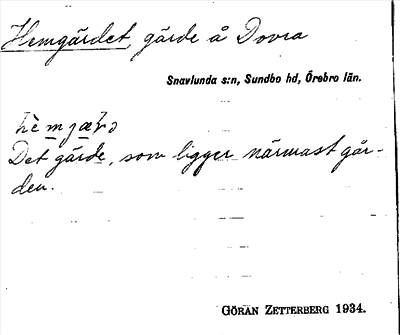 Hemgärdet, gärde å Dovra
Snavlunda s:n, Sundbo hd, Örebro län.
Det gärde, som ligger närmast går-
den.
GÖRAN ZETTERBERG 1934.